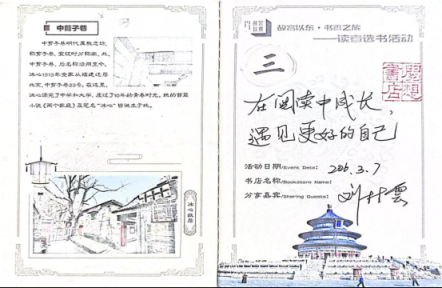 中剪子巷
中剪子巷明代属教忠坊，
称剪子巷，宣统时分称南、北、
中剪子巷，后名称沿用至今。
冰心1913年全家从福建迁居
北京，中剪子巷33号。在这里，
冰心读完了中学和大学，度过了10年的青春时光，她的首篇
小说《两个家庭》在冠名“冰心”皆诞生于此。
冰心故居
故宫以东·书香之旅
——读者选书活动
三
在阅读中成长，
遇见更好的自己
活动日期/Event Date:
书店名称/Bookstore Name:
分享嘉宾/Sharing Guests: